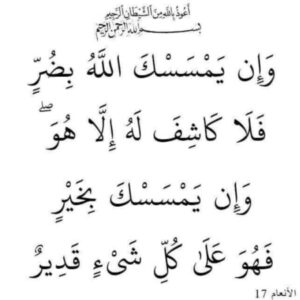 أعوذ بالله من الشيطان الرجيم
بسم الله الرحمن الرحيم
وَإِن يَمْسَسْكَ اللَّهُ بِضُرٍّ
فَلَا كَاشِفَ لَهُ إِلَّا هُوَ ۖ
وَإِن يَمْسَسْكَ بِخَيْرٍ
فَهُوَ عَلَىٰ كُلِّ شَىْءٍ قَدِيرٌ
الأنعام 17